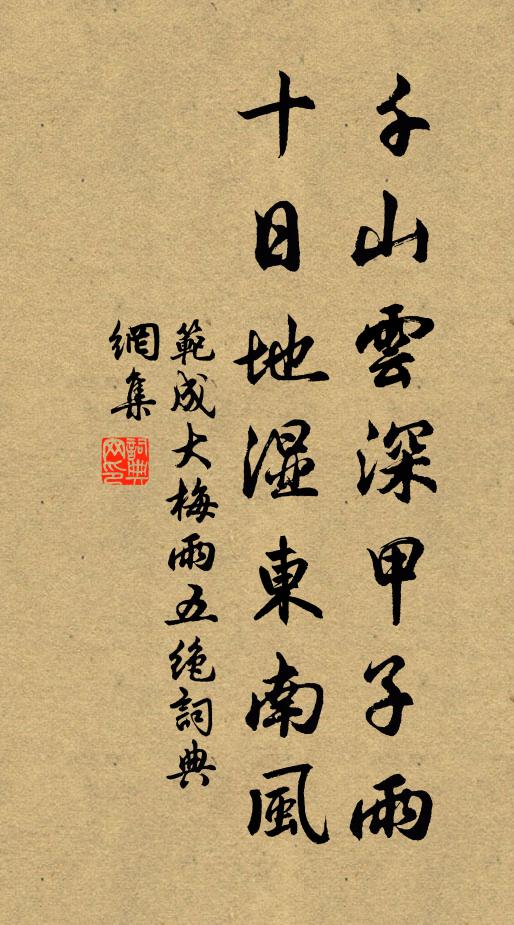 千山雲深甲子雨
十日地湿東南風
範成大梅雨五絶詞典
網集
詞典
网印